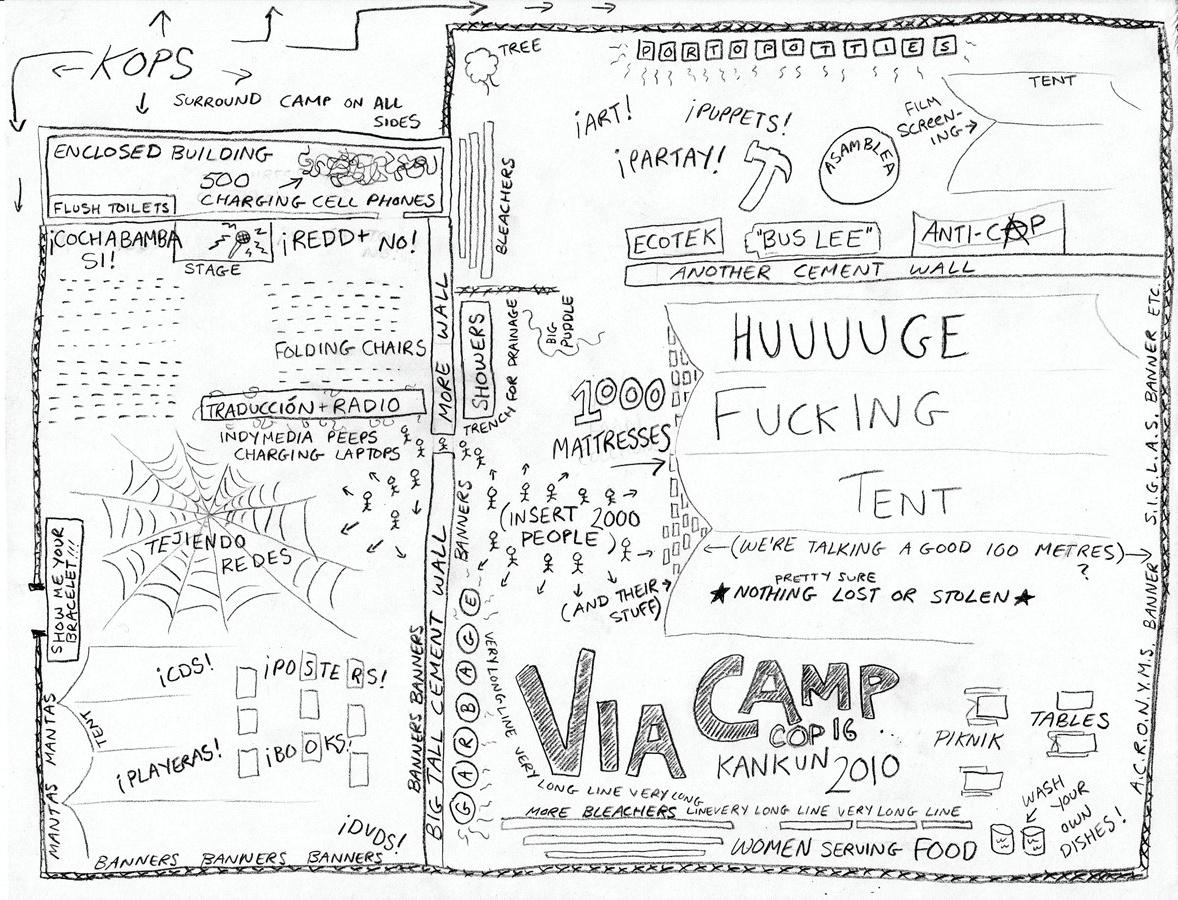 KOPS
SURROUND CAMP ON ALL
SIDES
ENCLOSED BUILDING
500
CHARGING CELL PHONES
FLUSH TOILETS
¡COCHABAMBA
SI!
STAGE
¡REDD+ NO!
FOLDING CHAIRS
TRADUCCIÓN + RADIO
INDYMEDIA PEEPS
CHARGING LAPTOPS
TEJIENDO
REDES
SHOW ME YOUR
BRACELET!!!
¡CDS!
¡POSTERS!
TENT
¡PLAYERAS!
¡BOOKS!
¡DVDS!
MANTAS MANTAS
BANNERS BANNERS BANNERS
BANNERS BANNERS
BIG TALL CEMENT WALL
MORE WALL
TREE
PORTOPOTTIES
TENT
FILM
SCREEN-
ING
¡ART!
¡PUPPETS!
¡PARTAY!
ASAMBLEA
BLEACHERS
ECOTEK
"BUS LEE"
ANTI-CAP
ANOTHER CEMENT WALL
SHOWERS
TRENCH FOR DRAINAGE
BIG
PUDDLE
HUUUUGE
FUCKING
TENT
1000
MATTRESSES
(INSERT 2000
PEOPLE)
(AND THEIR
STUFF)
(WE'RE TALKING A GOOD 100 METRES)
?
PRETTY SURE
★NOTHING LOST OR STOLEN★
BANNERS
GARBAGE
VERY LONG LINE VERY LONG LINE VERY LONG LINE VERY LONG LINE VERY LONG LINE
VIA CAMP
COP 16
KANKUN 2010
PIKNIK
TABLES
MORE BLEACHERS
WOMEN SERVING FOOD
WASH
YOUR
OWN
DISHES!
A.C.R.O.N.Y.M.S. BANNER S.I.G.L.A.S. BANNER ETC.